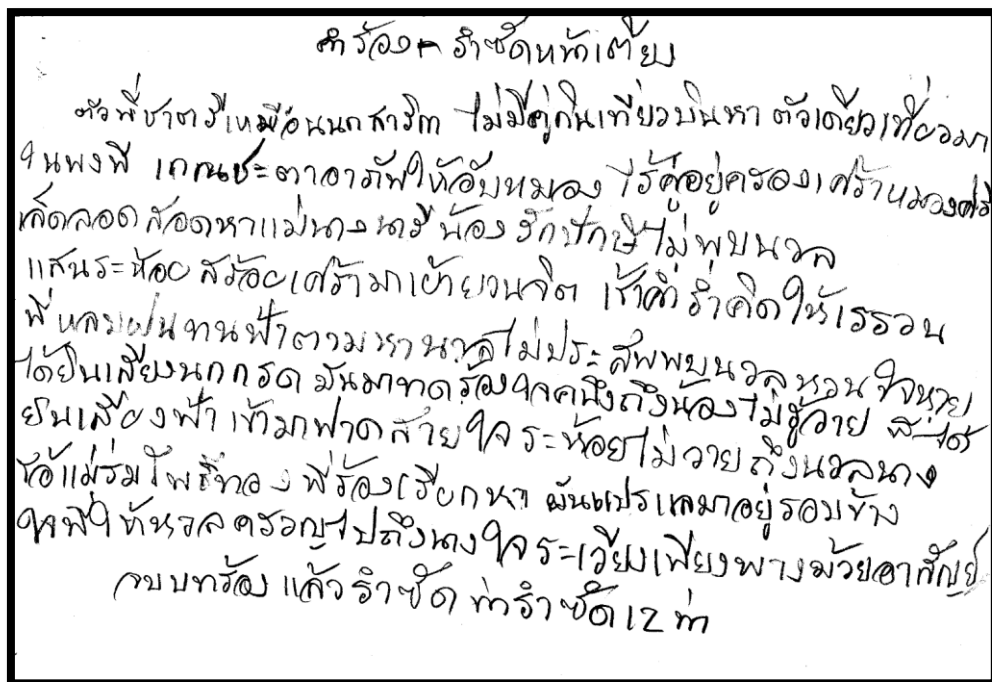 คำร้อง รำซัดหน้าเตียง
ตัวพี่ชาตรีเหมือนนกสาริกา ไม่มีคู่กินเที่ยวบินหา ตัวเดียวเที่ยวมา
ในพงพี เกณชะตาอาภัพให้อับหมอง ไร้คู่อยู่ครองเศร้าหมองศรี
เล็ดลอดสอดหาแม่นางนารี น้องรักปักษีไม่พบนวล
แสนระห้อย สร้อยเศร้ามาเย้ายวนจิต เช้าค่ำร่ำคิดให้เรรวน
พี่หลบฝนทนฟ้าตามหานวลไม่ประสพพบนวลหวนใจหาย
ได้ยินเสียงนกกรด มันมาทดร้อง ใจคนึงถึงน้องไม่รู้วาย ได้
ยินเสียงฟ้า เข้ามาฟาดสายใจระห้อยไม่วายถึงนวลนาง
โอ้แม่ร่มโพธิ์ทอง พี่ร้องเรียกหา ผันแปรแลมาอยู่รอบข้าง
ใจพี่ให้หวลครวญไปถึงนางใจระเวียงเพียงพางม้วยอาสัญย์
จบบทร้อง แล้วรำซัด ท่ารำซัด 12 ท่า